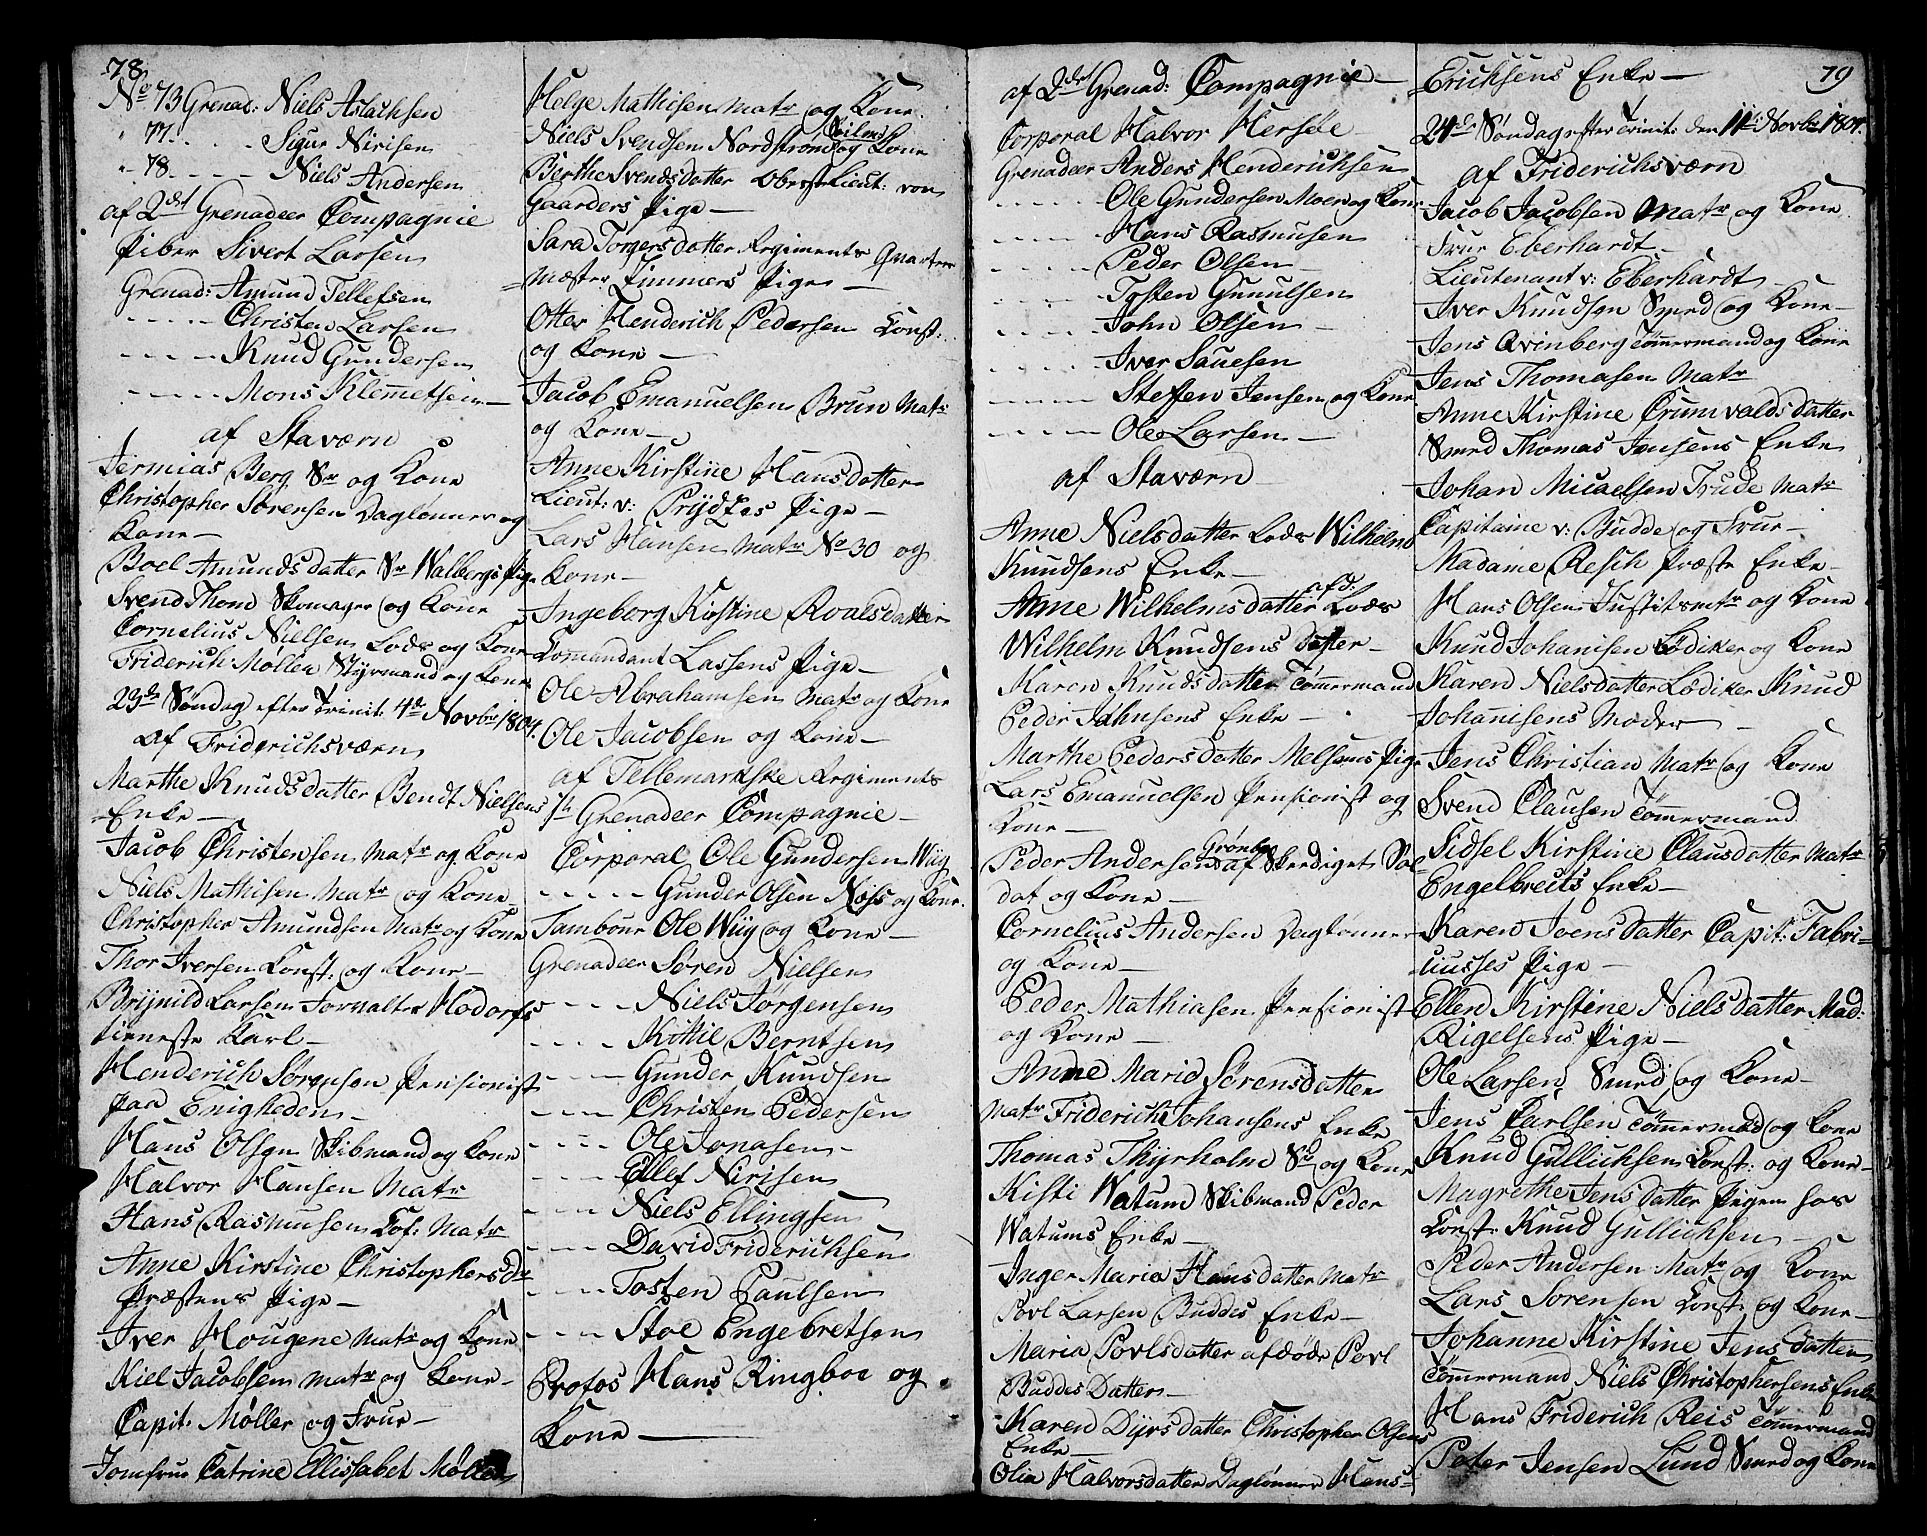 78.
No 73 Grenad: Niels Aslachsen
" 77. - - - Sigur Nirisen
" 78 - - - - Niels Andersen
af 2det Grenadeer Compagnie
Piber Sivert Larsen
Grenad: Amund Tellefsen
- - - - - Christen Larsen
- - - - - Knud Gundersen
- - - - - Mons Klemetsen
af Staværn
Jermias Berg Sr og Kone
Christopher Sørensen Daglønner og
Kone -
Boel Amundsdatter Sr Walbergs Pige
Svend Thom Skomager og Kone
Cornelius Nielsen Lods og Kone
Friderich Møller Styrmand og Kone
23de Søndag efter Trinit: 4de Novbr 1804.
af Friderichsværn
Marthe Knudsdatter Bendt Nielsens
Enke -
Jacob Christensen Matr og Kone
Niels Mathisen Matr og Kone
Christopher Amundsen Matr og Kone
Thor Iversen Const: og Kone -
Brynild Larsen Forvalter Hodorfs
tieneste Karl -
Henderich Sørensen Pensionist
paa Enigheden -
Hans Olsen Skibmand og Kone
Halvor Hansen Matr
Hans Rasmusen Matr
Anne Kirstine Christophersdr
Præstens Pige -
Iver Hougene Matr og Kone
Kiel Jacobsen Matr og Kone -
Capit: Møller og Frue -
Jomfrue Catrine Ellisabet Møller
Helge Mathisen Matr og Kone
Niels Svendsen Nordstrøm og Kone
Berthe Svendsdatter Oberst Lieut: von
Gaarders Pige -
Sara Torgersdatter Regiments Quarteer
=Mæster Zimmers Pige -
Otter Henderich Pedersen Const:
og Kone -
Jacob Emanuelsen Brun Matr
og Kone -
Anne Kirstine Hansdatter
Lieut: v: Prydzes Pige -
Lars Hansen Matr No 30 og
Kone -
Ingeborg Kirstine Roalsdatter
Comandant Lassens Pige -
Ole Abrahamsen Matr og Kone
Ole Jacobsen og Kone -
af Tellemarkske Regiments
1te Grenadeer Compagnie -
Corporal Ole Gundersen Wiig
- - - - - Gunder Olsen Næss og Kone.
Tambour Ole Wiig og Kone -
Grenadeer Søren Nielsen
- - - - Niels Jørgensen
- - - - Kittil Berntsen
- - - - Gunder Knudsen
- - - - Christen Pedersen
- - - - Ole Jonasen -
- - - - Ellef Nirisen
- - - - Niels Ellingsen
- - - - David Friderichsen
- - - - Tosten Paulsen
- - - - Stoe Engebretsen
Profos Hans Ringboe og
Kone
af 2det Grenad: Compagnie -
Corporal Halvor Hersøe -
Grenadeer Anders Henderichsen
- - - - - Ole Gundersen Moen og Kone
- - - - - Hans Rasmusen
- - - - - Peder Olsen -
- - - - - Tosten Gunulsen
- - - - - John Olsen -
- - - - - Iver Sauesen
- - - - - Steffen Jensen og Kone
- - - - - Ole Larsen -
af Staværn
Anne Nielsdatter Lods Wilhelm
Knudsens Enke -
Anne Wilhelmsdatter afd: Lods
Wilhelm Knudsens datter -
Karen Knudsdatter Tømmermand
Peder Johnsens Enke -
Marthe Pedersdatter Melsoms Pige
Lars Emanuelsen Pensionist og
Kone -
Peder Andersen Grønbye af Skerdiget Sol
dat og Kone -
Cornelius Andersen Daglønner
og Kone -
Peder Mathiasen Pensionist
og Kone -
Anne Marie Sørensdatter
Matr Friderich Johansens Enke
Thomas Thyrholm Sr og Kone
Kisti Watum Skibmand Peder
Watums Enke -
Inger Maria Hansdatter Matr
Povl Larsen Buddes Enke -
Maria Povlsdatter afdøde Povl
Buddes Datter -
Karen Dyrsdatter Christopher Olsens
Enke -
Olia Halvorsdatter Daglønner Hans
Erichsens Enke -
79
24de Søndag efter Trinit: den 11te Novbr 1804.
af Friderichsværn
Jacob Jacobsen Matr og Kone
Frue Eberhardt -
Lieutenant v: Eberhardt -
Iver Knudsen Smed og Kone -
Jens Qvinberg Tømmermand og Kone
Jens Thomasen Matr
Anne Kirstine Crumvaldsdatter
Smed Thomas Jensens Enke
Johan Micaelsen Trude Matr
Capitaine v: Budde og Frue -
Madame Resch Præste Enke -
Hans Olsen og Kone
Knud Johanisen Lødiker og Kone
Karen Nielsdatter Lødiker Knud
Johanisens Moder -
Jens Christian Matr og Kone
Svend Clausen Tømmermand
Sidsel Kirstine Clausdatter Matr
Engelbreits Enke -
Karen Joensdatter Capit: Fabri=
=ciusses Pige -
Ellen Kirstine Nielsdatter Mad:
Rigelsens Pige -
Ole Larsen Smed og Kone -
Jens Carlsen Tømmermand og Kone
Knud Gullichsen Const: og Kone -
Magrethe Jensdatter Pigen hos
Const: Knud Gullichsen -
Peder Andersen Matr og Kone
Lars Sørensen Const: og Kone -
Johanne Kirstine Jensdatter
Tømmermand Niels Christophersens Enke
Hans Friderich Reis Tømmermand
Peter Jensen Lund Smed og Kone